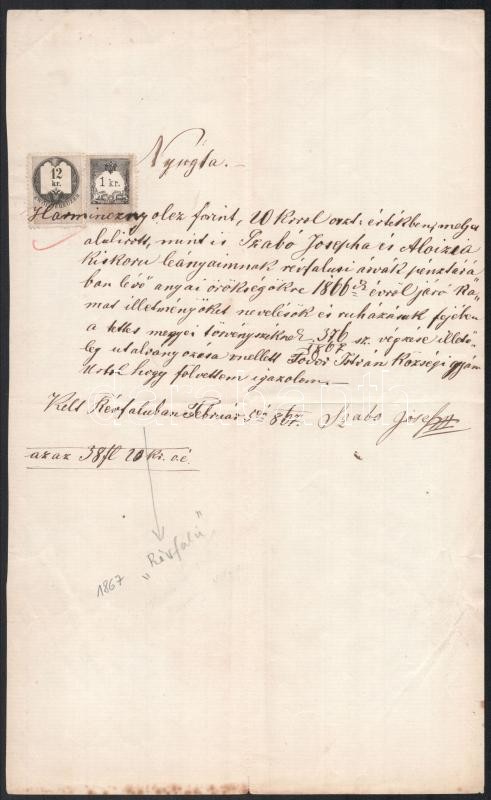 Nyugta.–
12
kr.
1 kr.
Harmincznyolcz forint, 20 krról oszt. értékben, melyet
alulirott, mint is Szabó Josepha és Aloizia
kiskoru leányaimnak révfalusi árvák pénztárá
ban lévő anyai örökségökre 1866ik évről járó Ka-
mat illetményöket nevelésök és ruházásuk fejében
a tettes megyei törvényszéknek 376/1867 sz. végzése illető-
leg utalványozása mellett Fodor István Községi gyám
úrtól, hogy fölvettem igazolom.–
Kelt Révfaluban Február 5én 867. Szabó József
azaz 38 fl 20 kr. o.é.
1867 „Révfalu"